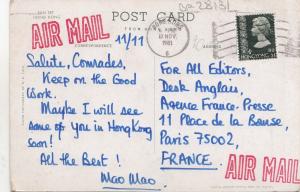 POST CARD
HONG KONG
AIR MAIL
CORRESPONDENCE
11/11
Salute, Comrades,
Keep on the Good
Work.
Maybe I will see
some of you in HongKong
soon!
All the Best!
Mao Mao.
NOV
1981
HONG KONG
For All Editors,
Desk Anglais,
Agence France-Presse
11 Place de la Bourse,
Paris 75002,
FRANCE.
AIR MAIL